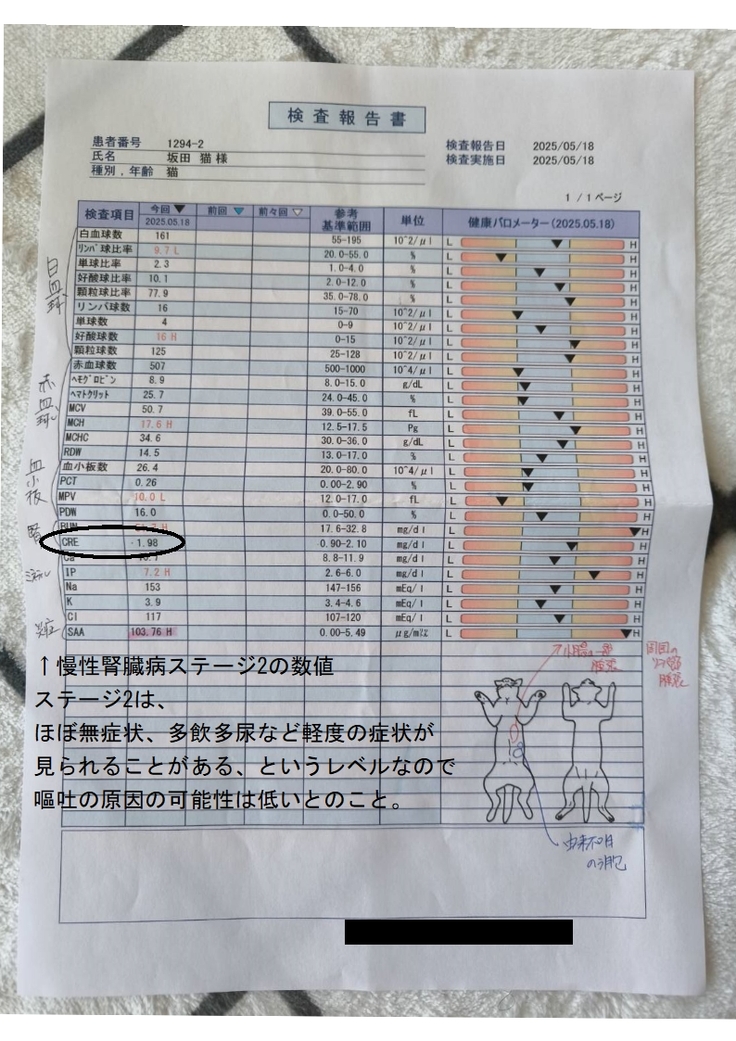 検査報告書
患者番号 1294-2 検査報告日 2025/05/18
氏名 坂田 猫 様 検査実施日 2025/05/18
種別,年齢 猫
1 / 1 ページ
検査項目 今回▼ 2025.05.18 前回▼ 前々回▽ 参考基準範囲 単位 健康バロメーター(2025.05.18)
白血球数 161 55-195 10^2/μl L H
リンパ球比率 9.7 L 20.0-55.0 % L H
単球比率 2.3 1.0-4.0 % L H
好酸球比率 10.1 2.0-12.0 % L H
顆粒球比率 77.9 35.0-78.0 % L H
リンパ球数 16 15-70 10^2/μl L H
単球数 4 0-9 10^2/μl L H
好酸球数 16 H 0-15 10^2/μl L H
顆粒球数 125 25-128 10^2/μl L H
赤血球数 507 500-1000 10^4/μl L H
ヘモグロビン 8.9 8.0-15.0 g/dL L H
ヘマトクリット 25.7 24.0-45.0 % L H
MCV 50.7 39.0-55.0 fL L H
MCH 17.6 H 12.5-17.5 Pg L H
MCHC 34.6 30.0-36.0 g/dL L H
RDW 14.5 13.0-17.0 % L H
血小板数 26.4 20.0-80.0 10^4/μl L H
PCT 0.26 0.00-2.90 % L H
MPV 10.0 L 12.0-17.0 fL L H
PDW 16.0 0.0-50.0 % L H
BUN H 17.6-32.8 mg/dl L H
CRE 1.98 0.90-2.10 mg/dl L H
Ca 8.8-11.9 mg/dl L H
IP 7.2 H 2.6-6.0 mg/dl L H
Na 153 147-156 mEq/l L H
K 3.9 3.4-4.6 mEq/l L H
Cl 117 107-120 mEq/l L H
SAA 103.76 H 0.00-5.49 μg/mL L H
白血球
赤血球
血小板
腎
炎症
↑慢性腎臓病ステージ2の数値
ステージ2は、
ほぼ無症状、多飲多尿など軽度の症状が
見られることがある、というレベルなので
嘔吐の原因の可能性は低いとのこと。
小腸の一部
由来不明
の